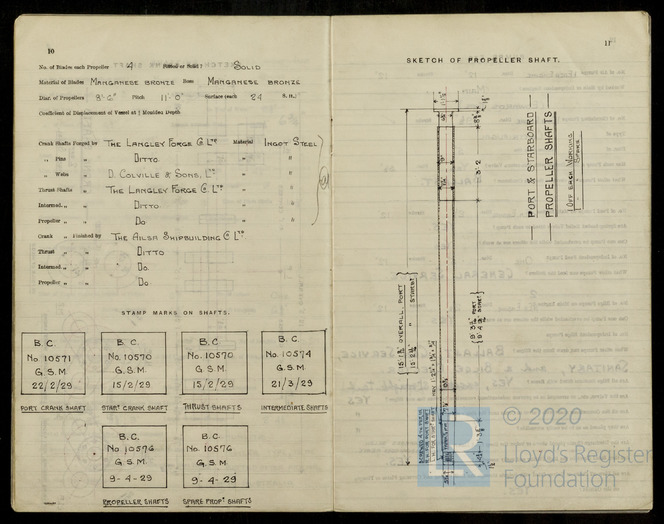 10
No. of Blades each Propeller 4 Fitted or Solid? SOLID
Material of Blades MANGANESE BRONZE Boss MANGANESE BRONZE
Diar. of Propellers 8'-6" Pitch 11'-0" Surface (each 24 S. ft.)
Coefficient of Displacement of Vessel at ¾ Moulded Depth
Crank Shafts Forged by THE LANGLEY FORGE Co LTD Material INGOT STEEL
„ Pins „ DITTO „ "
„ Webs „ D. COLVILLE & SONS, LTD „ "
Thrust Shafts „ THE LANGLEY FORGE Co LTD „ "
Intermed. „ „ DITTO „ "
Propeller „ „ DO „ "
Crank „ Finished by THE AILSA SHIPBUILDING Co LTD
Thrust „ „ DITTO
Intermed. „ „ DO.
Propeller „ „ DO
STAMP MARKS ON SHAFTS.
B.C.
No. 10571
G.S.M
22/2/29
PORT CRANK SHAFT
B.C.
No. 10570
G.S.M
15/2/29
STARD CRANK SHAFT
B.C.
No 10570
G.S.M
15/2/29
THRUST SHAFTS
B.C.
No. 10574
G.S.M
21/3/29
INTERMEDIATE SHAFTS
B.C.
No 10576
G.S.M.
9-4-29
PROPELLER SHAFTS
B.C.
No 10576
G.S.M.
9-4-29
SPARE PROPR SHAFTS
11
SKETCH OF PROPELLER SHAFT.
PORT & STARBOARD
PROPELLER SHAFTS
1 OFF EACH WORKING
SPARE
3'-2
OVERALL PORT
STARBD
© 2020
Lloyd's Register
Foundation